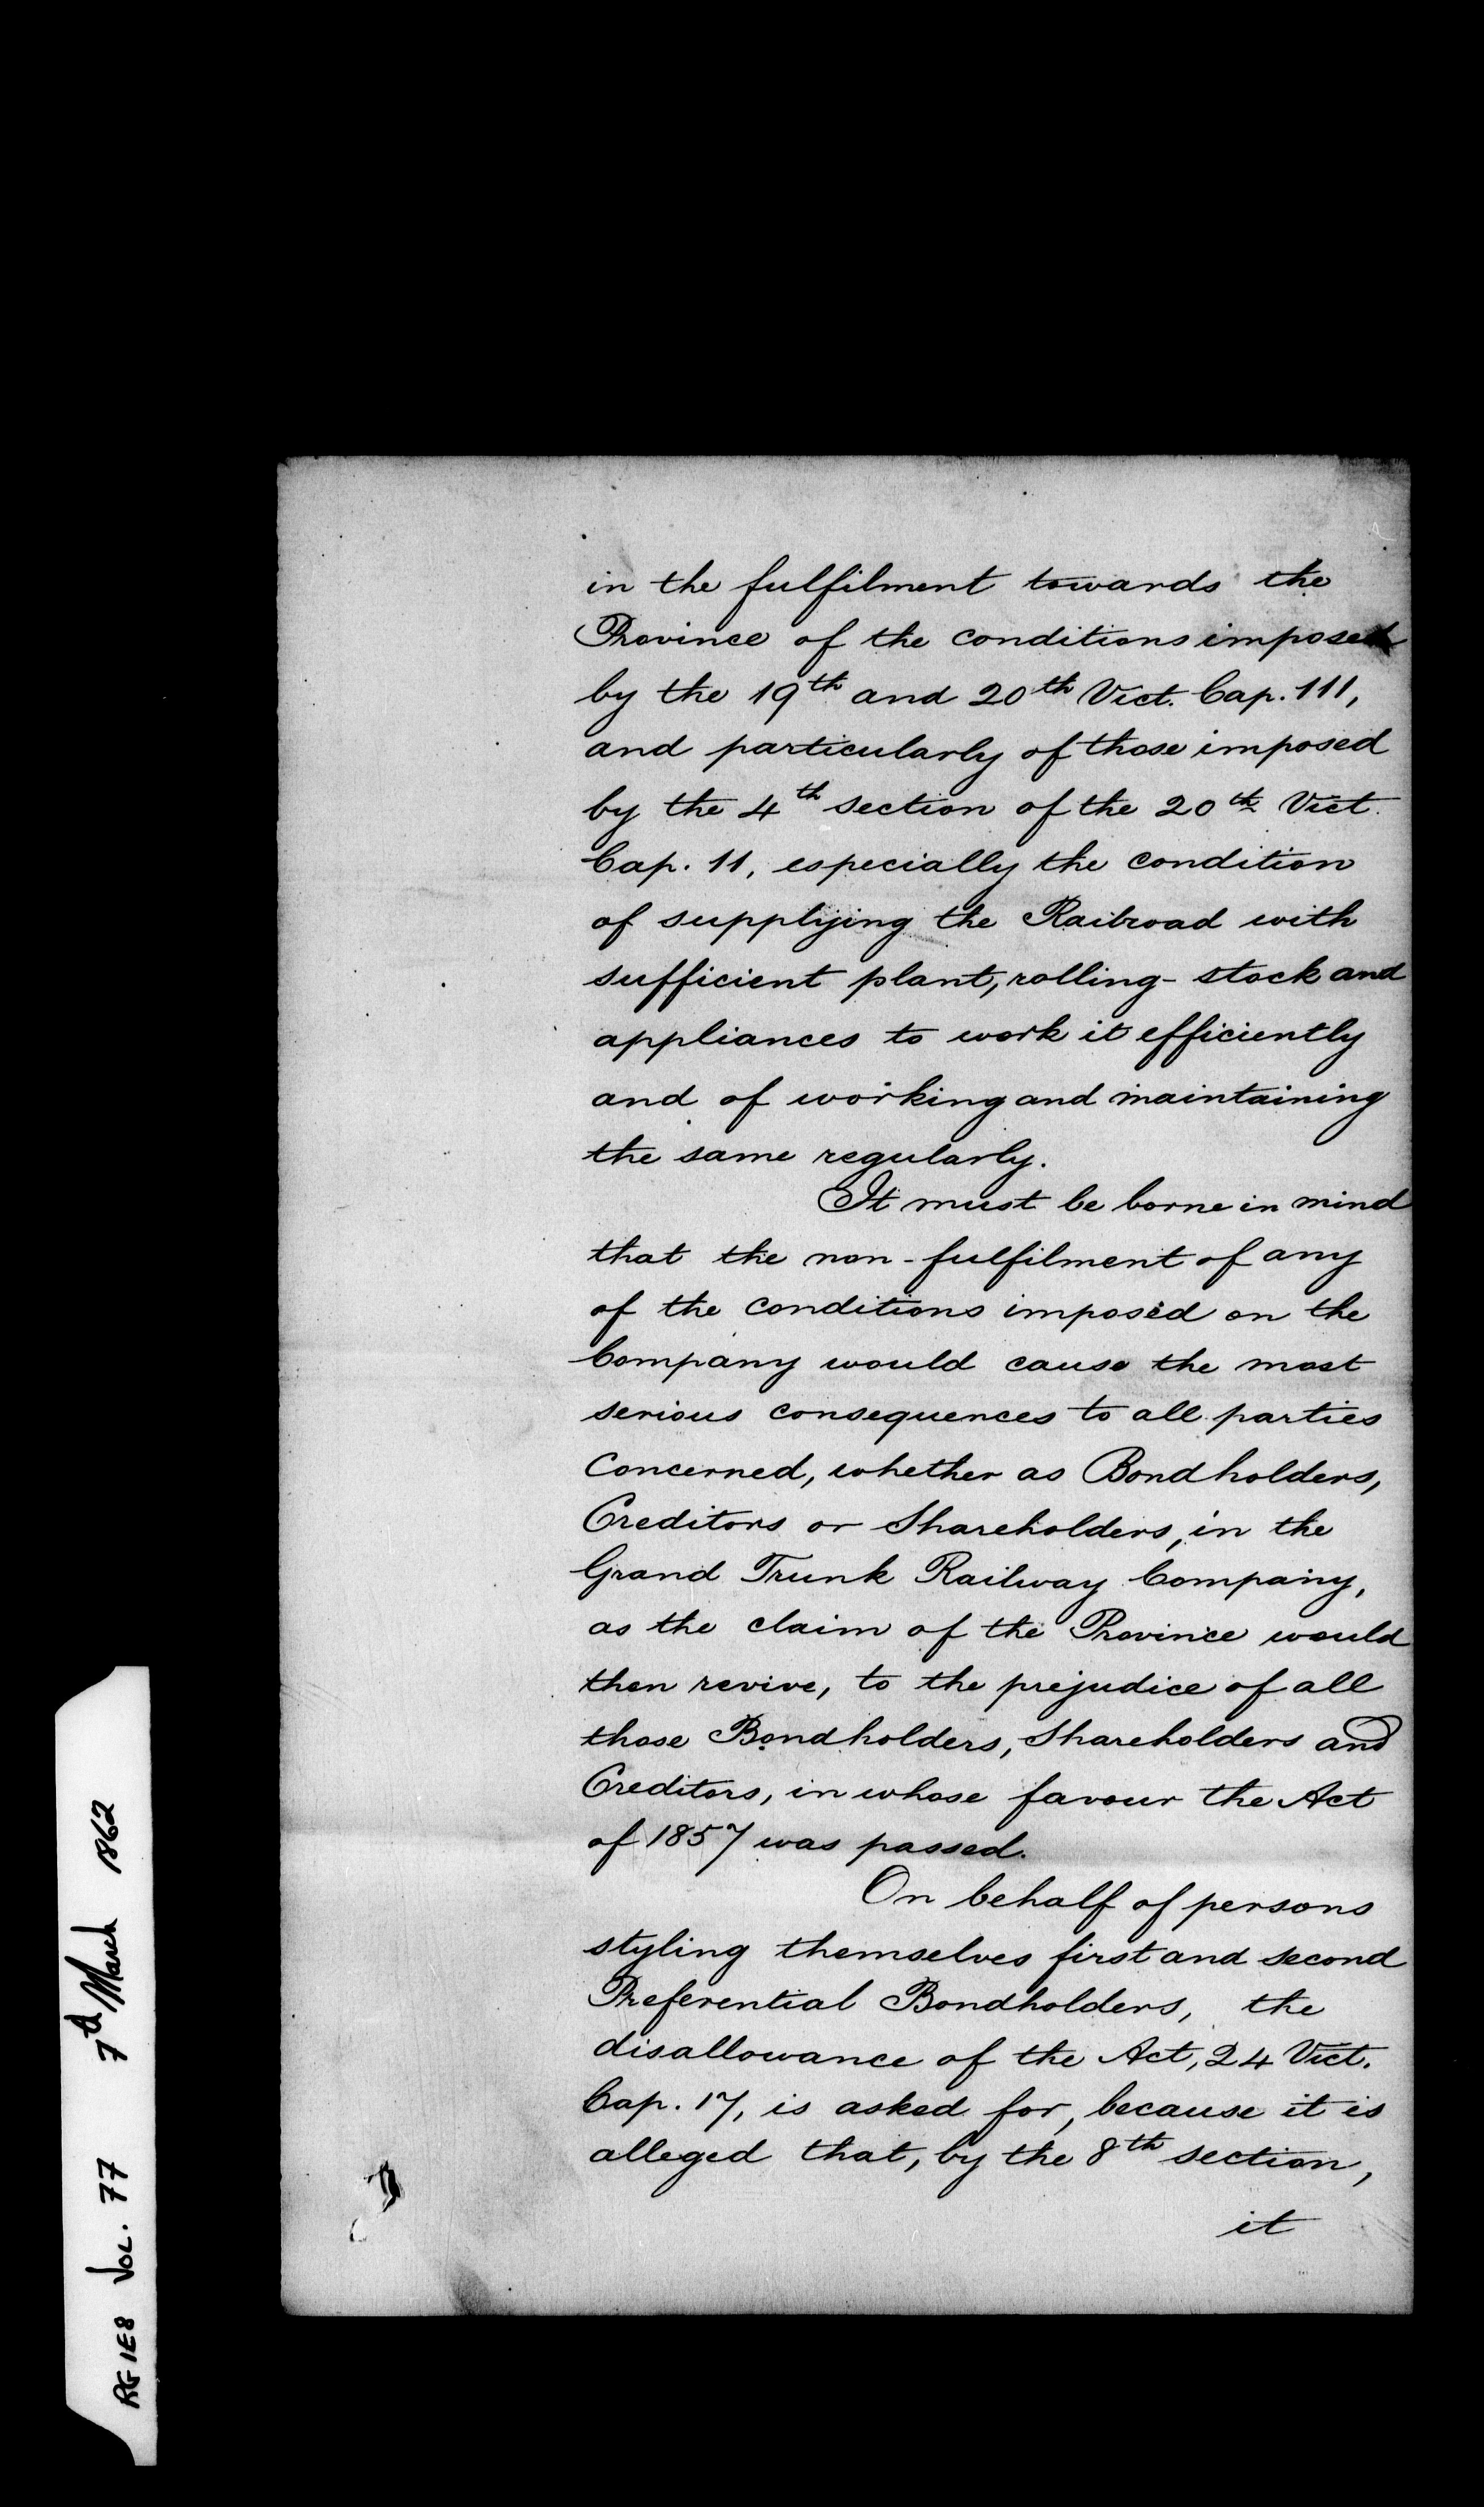 in the fulfilment towards the
Province of the conditions imposed
by the 19th and 20th Vict. Cap. 111,
and particularly of those imposed
by the 4th section of the 20th Vict.
Cap. 11, especially the condition
of supplying the Railroad with
sufficient plant, rolling-stock and
appliances to work it efficiently
and of working and maintaining
the same regularly.
It must be borne in mind
that the non-fulfilment of any
of the conditions imposed on the
Company would cause the most
serious consequences to all parties
concerned, whether as Bondholders,
Creditors or Shareholders, in the
Grand Trunk Railway Company,
as the claim of the Province would
then revive, to the prejudice of all
those Bondholders, Shareholders and
Creditors, in whose favour the Act
of 1857 was passed.
On behalf of persons
styling themselves first and second
Preferential Bondholders, the
disallowance of the Act, 24 Vict.
Cap. 17, is asked for, because it is
alleged that, by the 8th section,
it
RG 1E8 Vol. 77 7th March 1862